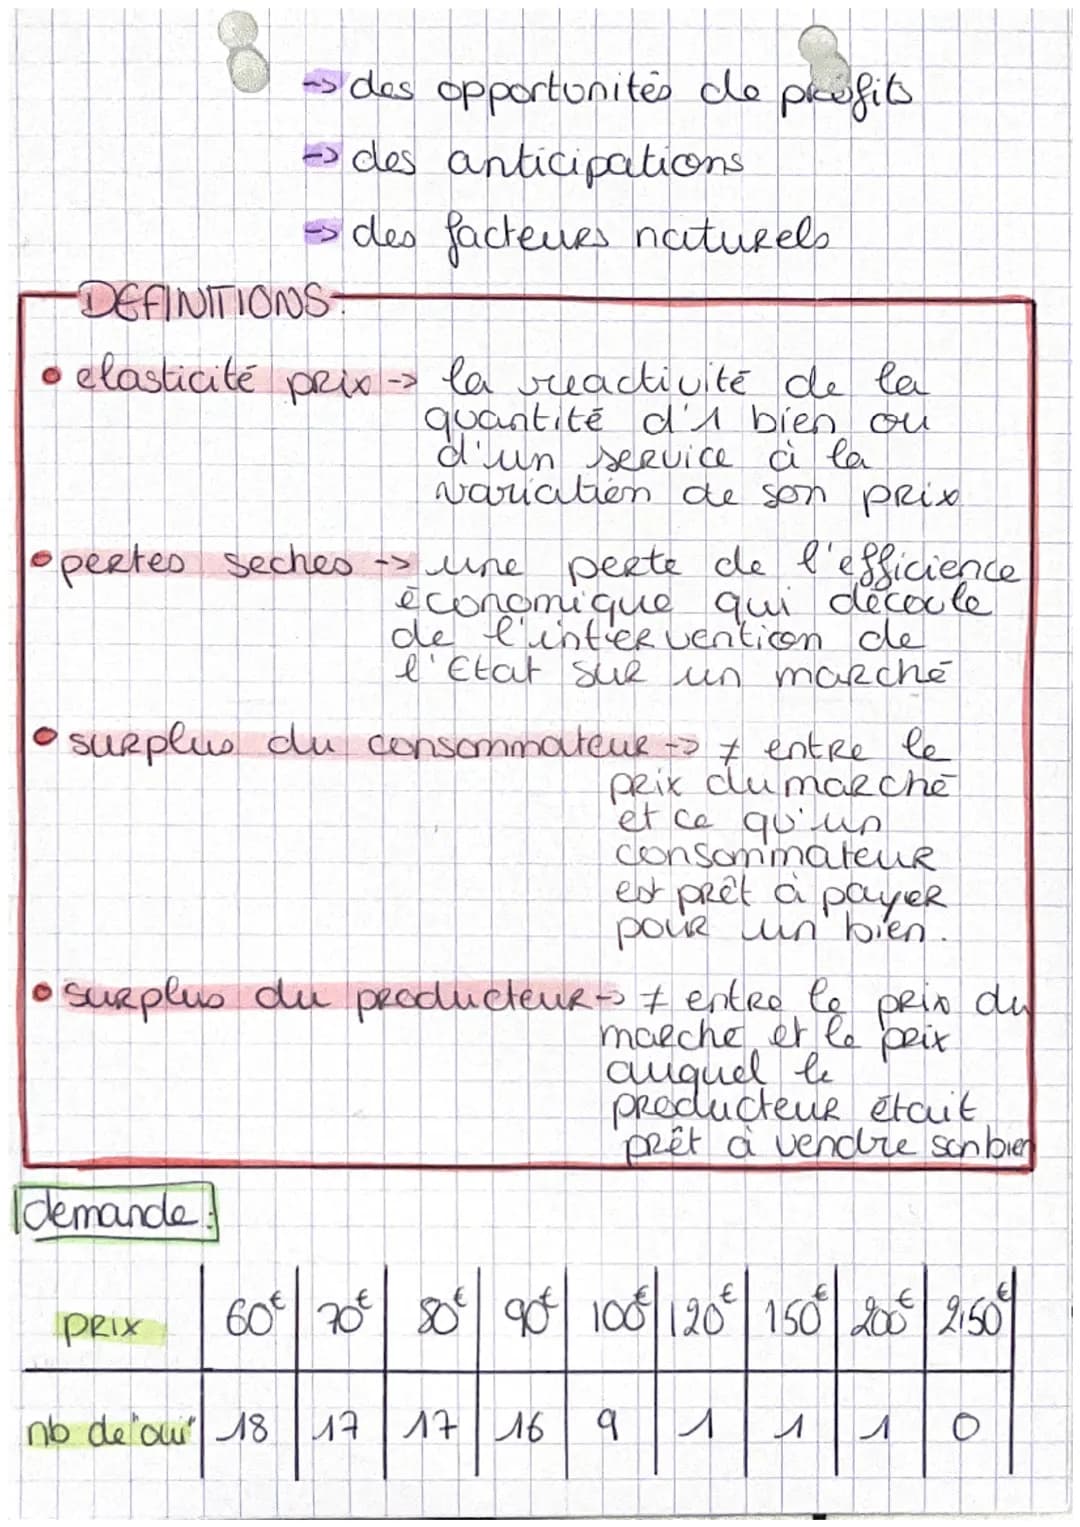 -> des opportunités de profits
-> des anticipations
-> des facteurs naturels
DEFINITIONS:
• elasticité prix -> la reactivité de la
quantité d'1 bien ou
d'un service à la
variation de son prix
• pertes seches -> une perte de l'efficience
économique qui découle
de l'intervention de
l'Etat sur un marché
• surplus du consommateur -> ≠ entre le
prix du marché
et ce qu'un
consommateur
est prêt à payer
pour un bien.
• surplus du producteur -> ≠ entre le prix du
marche et le prix
auquel le
producteur était
prêt à vendre son bien
demande:
prix 60€ 70€ 80€ 90€ 100€ 120€ 150€ 200€ 250€
nb de "oui" 18 17 17 16 9 1 1 1 0